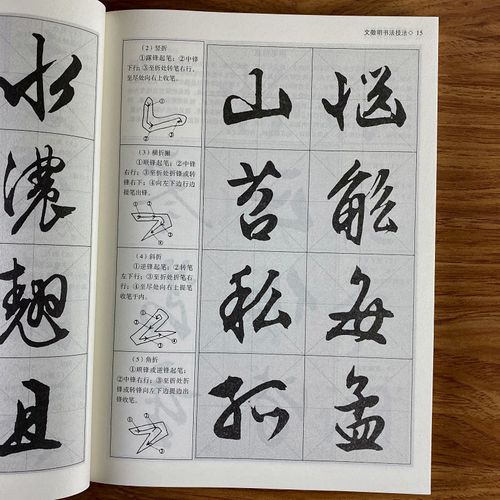 水
濃
翘
且
文徵明书法技法◇ 15
（2）竖折
①露锋起笔；②中锋
下行；③至折处转笔右行，
至尽处向右上收笔。
① ② ③
山
（3）横折撇
①顺锋起笔；②中锋
右行；③至折处折锋或转
锋右下；④向左下边行边
提笔出锋。
① ② ③ ④
能
（4）斜折
①逆锋起笔；②转笔
左下行；③至折处折笔右
行；④至尽处向右上提笔
收笔于内。
① ② ③ ④
私 每
（5）角折
①顺锋或逆锋起笔；
②中锋右行；③至折处折
锋或转锋向左下边提边出
锋收笔。
① ② ③
孤 孟